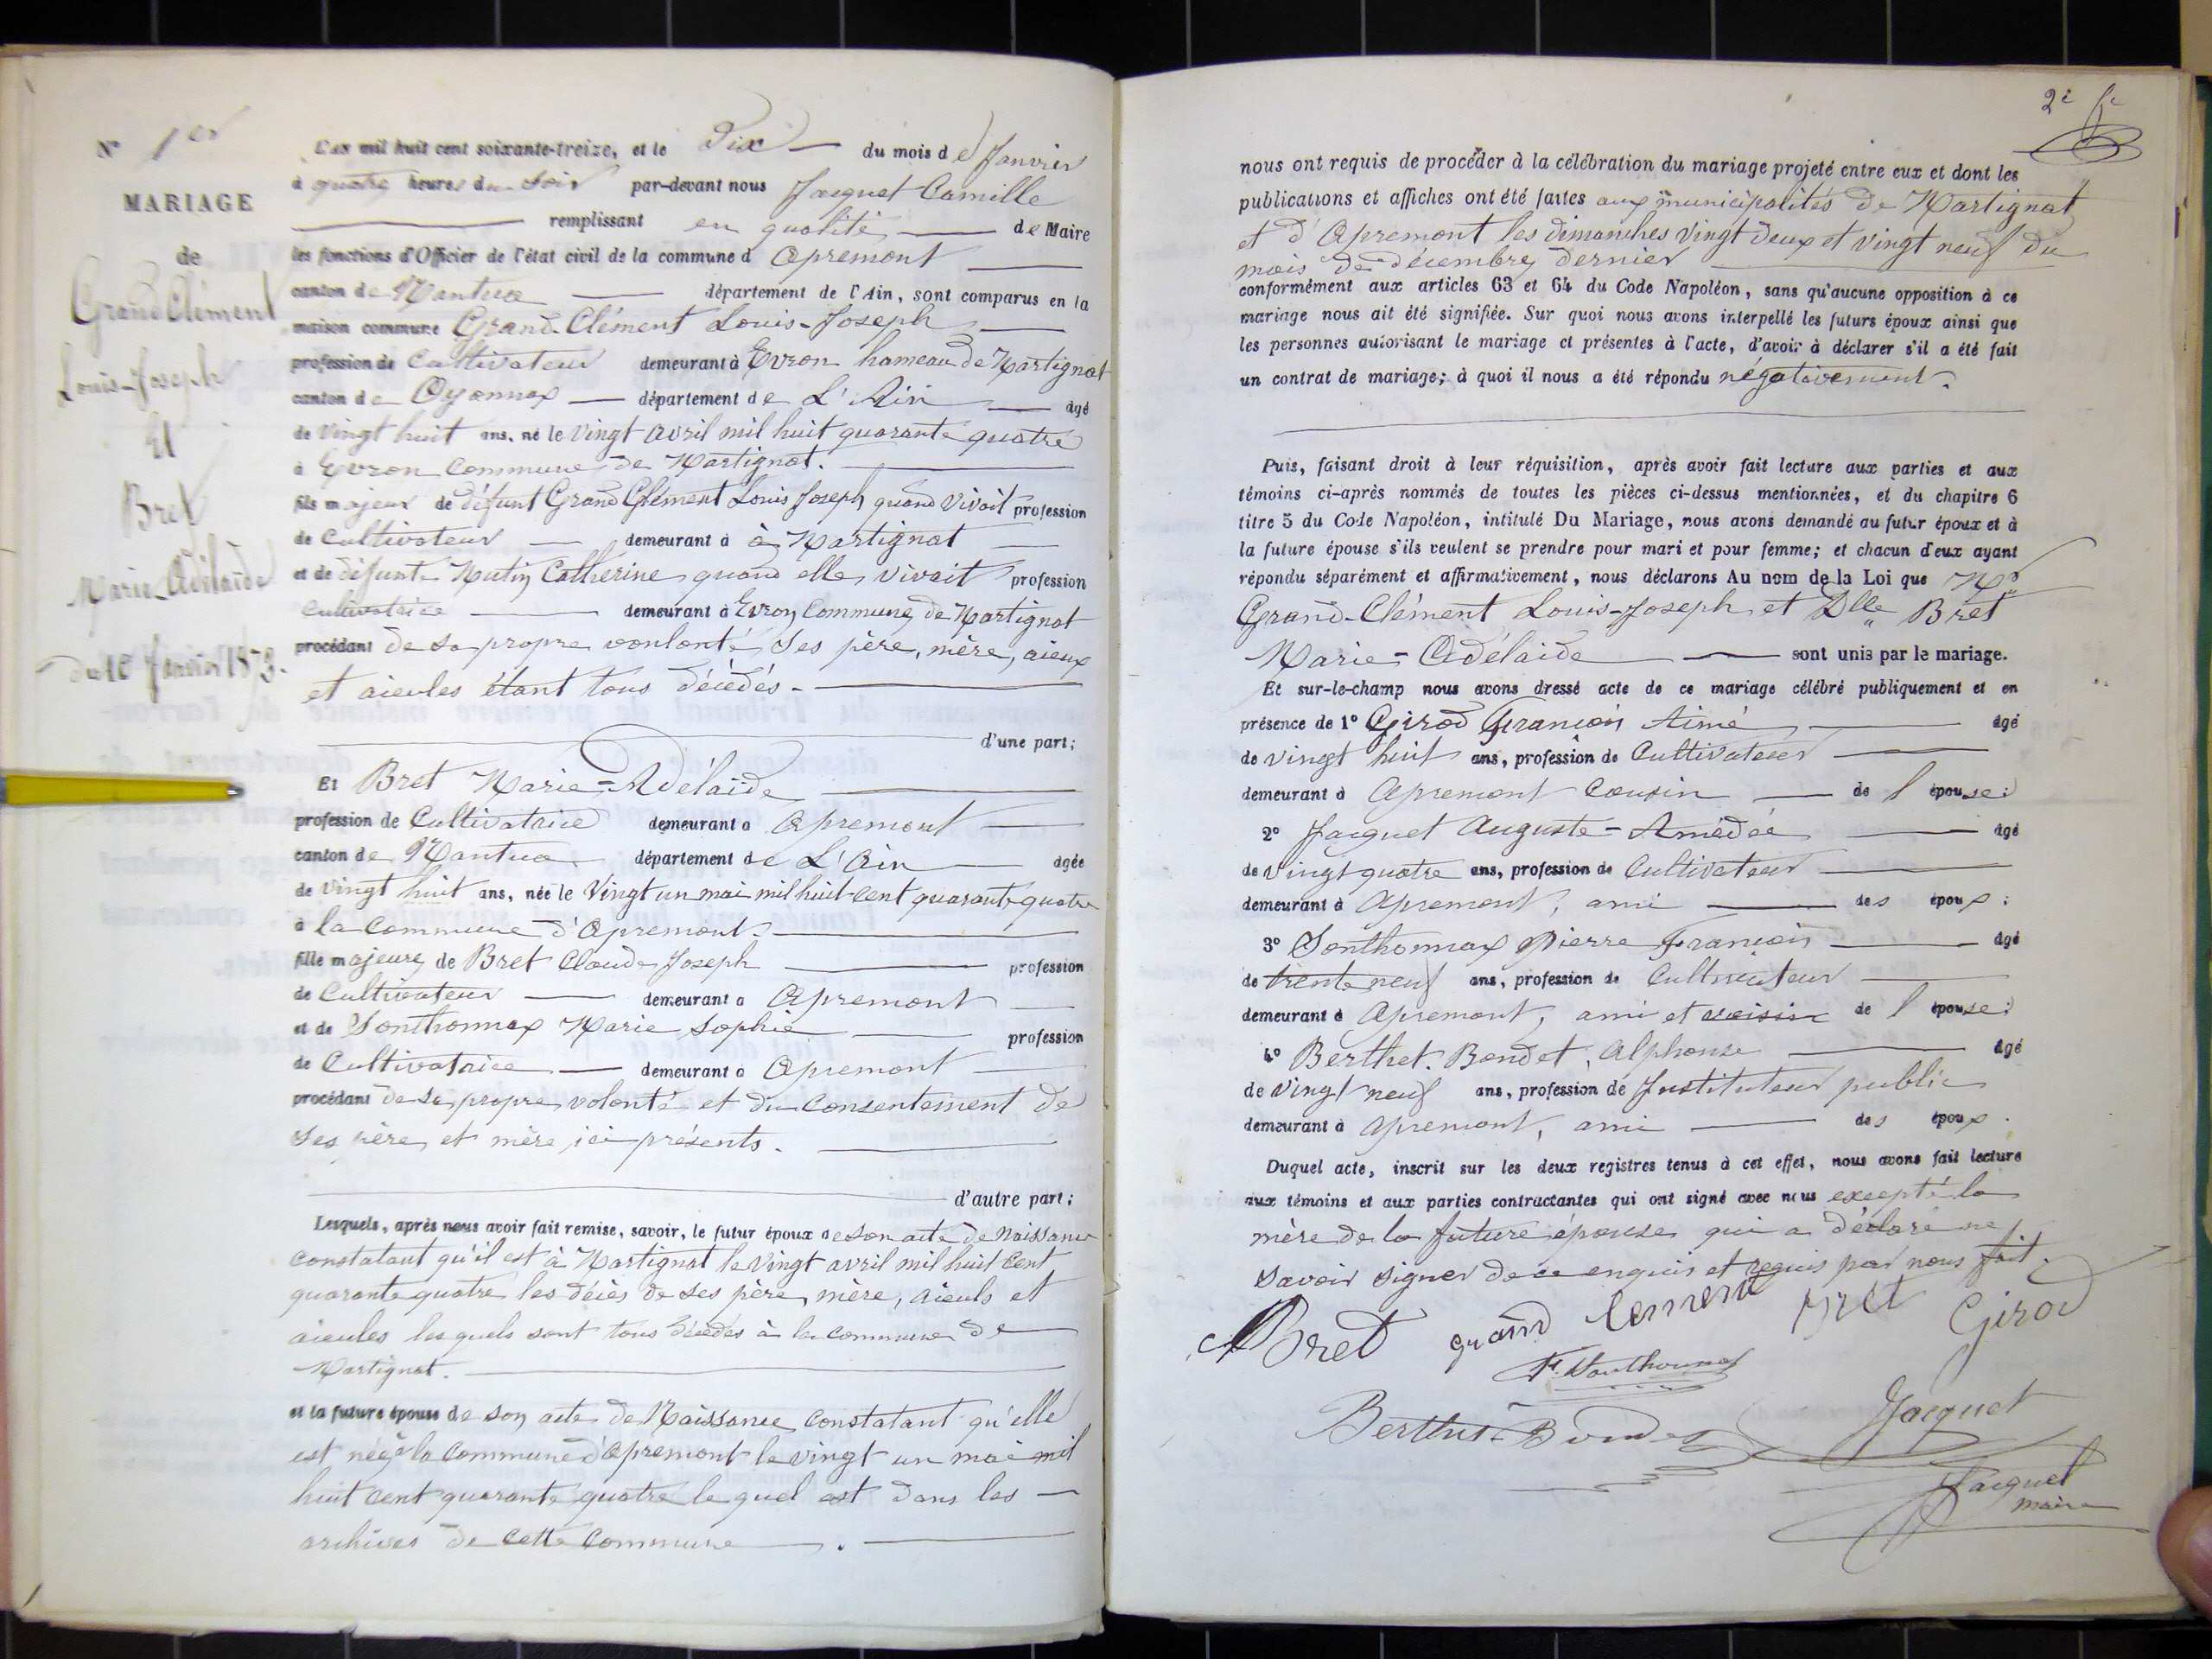 N° 1er
MARIAGE
de
Grand Clément
Louis-Joseph
Et
Bret
Marie-Adélaïde
du 10 Janvier 1873.
L'an mil huit cent soixante-treize, et le Dix du mois de Janvier
à quatre heures du soir par-devant nous Jacquet Camille
remplissant en qualité de Maire
les fonctions d'Officier de l'état civil de la commune d Apremont
canton de Nantua département de l'Ain, sont comparus en la
maison commune Grand-Clément Louis-Joseph
profession de Cultivateur demeurant à Evron hameau de Martignat
canton de Oyonnax département de L'Ain âgé
de Vingt huit ans, né le Vingt avril mil huit quarante quatre
à Evron commune de Martignat.
fils majeur de défunt Grand Clément Louis Joseph quand vivait profession
de Cultivateur demeurant à à Martignat
et de défunte Mutin Catherine quand elle vivait profession
Cultivatrice demeurant à Evron Commune de Martignat
procédant de sa propre vonlonté ses père, mère, aieux
et aieules étant tous décédés.
d'une part;
Et Bret Marie-Adélaïde
profession de Cultivatrice demeurant a Apremont
canton de Nantua département de L'Ain âgée
de Vingt huit ans, née le Vingt un mai mil huit-cent quarante quatre
à la commune d'Apremont
fille majeure de Bret Claude Joseph profession
de Cultivateur demeurant a Apremont
et de Sonthonnax Marie Sophie profession
de Cultivatrice demeurant à Apremont
procédant de sa propre volonté et du consentement de
ses père et mère ici présents.
d'autre part;
Lesquels, après nous avoir fait remise, savoir, le futur époux de son acte de Naissance
constatant qu'il est à Martignat le vingt avril mil huit cent
quarante quatre les décès de ses père, mère, aieuls et
aieules lesquels sont tous décédés à la commune de
Martignat.
et la future épouse de son acte de Naissance constatant qu'elle
est née à la commune d'Apremont le vingt un mai mil
huit cent quarante quatre lequel est dans les
archives de cette commune.
2e
nous ont requis de procéder à la célébration du mariage projeté entre eux et dont les
publications et affiches ont été faites aux municipalités de Martignat
et d'Apremont les dimanches vingt deux et vingt neuf du
mois de décembre dernier
conformément aux articles 63 et 64 du Code Napoléon, sans qu'aucune opposition à ce
mariage nous ait été signifiée. Sur quoi nous avons interpellé les futurs époux ainsi que
les personnes autorisant le mariage et présentes à l'acte, d'avoir à déclarer s'il a été fait
un contrat de mariage; à quoi il nous a été répondu négativement.
Puis, faisant droit à leur réquisition, après avoir fait lecture aux parties et aux
témoins ci-après nommés de toutes les pièces ci-dessus mentionnées, et du chapitre 6
titre 5 du Code Napoléon, intitulé Du Mariage, nous avons demandé au futur époux et à
la future épouse s'ils veulent se prendre pour mari et pour femme; et chacun d'eux ayant
répondu séparément et affirmativement, nous déclarons Au nom de la Loi que Mr
Grand-Clément Louis-Joseph et Dlle Bret
Marie-Adélaïde sont unis par le mariage.
Et sur-le-champ nous avons dressé acte de ce mariage célébré publiquement et en
présence de 1° Girod François Aimé âgé
de vingt huit ans, profession de Cultivateur
demeurant à Apremont Cousin de l épouse;
2° Jacquet Auguste-Amédée âgé
de vingt quatre ans, profession de Cultivateur
demeurant à Apremont, ami des époux;
3° Sonthonnax Pierre François âgé
de trente neuf ans, profession de Cultivateur
demeurant à Apremont, ami et voisin de l épouse;
4° Berthet-Bondet, Alphonse âgé
de Vingt neuf ans, profession de Instituteur public
demeurant à Apremont, ami des époux.
Duquel acte, inscrit sur les deux registres tenus à cet effet, nous avons fait lecture
aux témoins et aux parties contractantes qui ont signé avec nous excepté la
mère de la future épouse qui a déclaré ne
savoir signer de ce enquis et requis par nous fait.
Bret grand clement Bret Girod
F. Sonthonnax
Berthet-Bondet Jacquet
Jacquet
maire